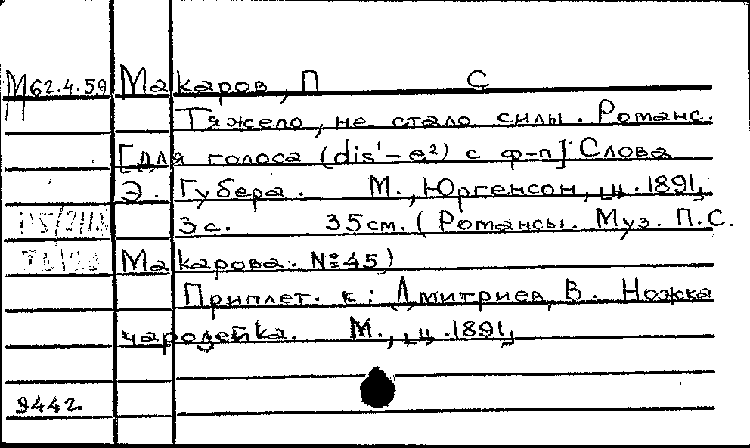 М62.4.59 Макаров, П С
Тяжело, не стало силы. Романс.
[для голоса (dis¹-a²) с ф-п] Слова
Э. Губера. М., Юргенсон, ц. 1891,
3с. 35см. (Романсы. Муз. П.С.
Макарова. №45)
Приплет. к: Дмитриев, В. Ножка
чародейка. М., ц. 1891,
9442.